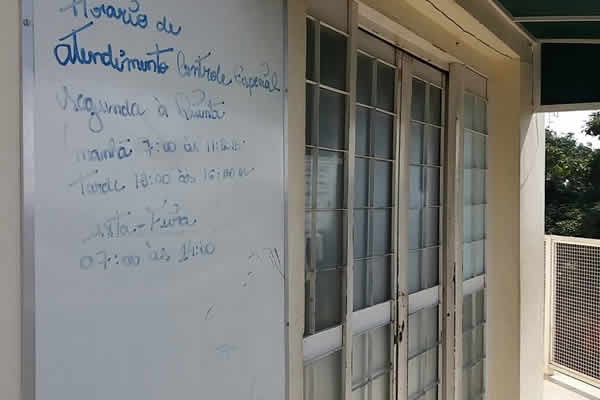 Horário de
atendimento Controle Especial
Segunda à Quinta
manhã 7:00 às 11:00
Tarde 13:00 às 16:00 H
Sexta-Feira
07:00 às 14:00